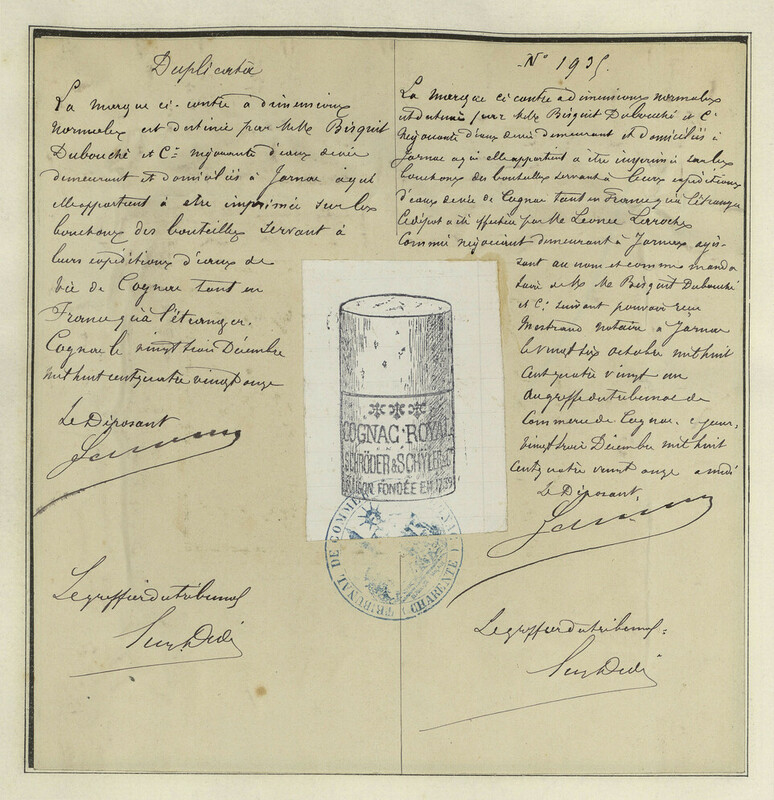 Duplicata
La marque ci-contre à dimensions
normales est destinée par MM Bisquit
Dubouché et Cie négociants d'eaux devie
demeurant et domiciliés à Jarnac àqui
elleappartient à etre imprimée sur les
bouchons des bouteilles servant à
leurs expéditions d'eaux de
vie de Cognac tant en
France qu'à l'étranger.
Cognac le vingt trois Décembre
mil huit cent quatre vingt onze
Le Déposant
Le greffier du tribunal
N° 1935.
La marque ci contre a dimensions normales
est destinée par MM Bisquit Dubouché et Cie
négociants d'eaux devie demeurant et domiciliés à
Jarnac aqui elleappartient a être imprimée sur les
bouchons des bouteilles servant à leurs expéditions
d'eaux devie de Cognac tant en France qu'à l'étranger
Ledépot a été effectué par Mr Léonce Laroche
Commis négociant demeurant à Jarnac agis-
sant au nom et comme manda
taire de MM Bisquit Dubouché
et Cie suivant pouvoir reçu
Mestraud notaire a Jarnac
le vingt six octobre mil huit
cent quatre vingt un
au greffe du tribunal de
commerce de Cognac, ce jour,
vingt trois Décembre mil huit
cent quatre vingt onze a midi
Le Déposant
Le greffier du tribunal
COGNAC·ROYAL
SCHRÖDER & SCHŸLER & Co
MAISON FONDÉE EN 1739
TRIBUNAL DE COMMERCE COGNAC (CHARENTE)